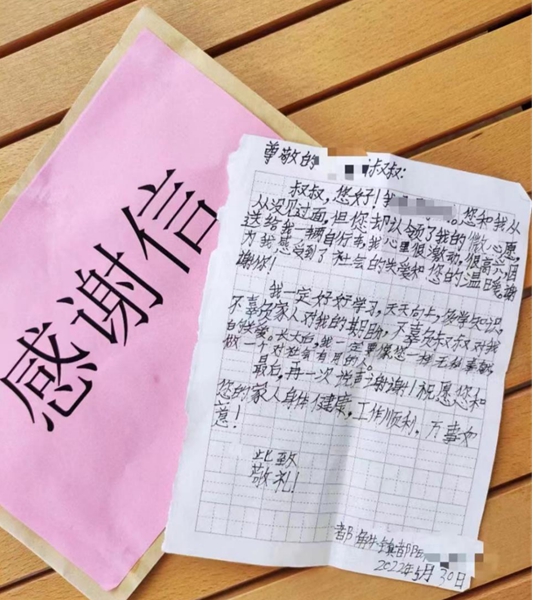 感谢信
尊敬的 叔叔：
叔叔，您好！我 。您和我从
从没见过面，但您却认领了我的微心愿，
送给我一辆自行车，我心里很激动，很高兴，因
为我感受到了社会的关爱和您的温暖。谢
谢你！
我一定好好学习，天天向上，
不辜负家人对我的期盼，不辜负叔叔对我
的关爱。长大后，我一定要像您一样无私奉献，
做一个对社会有用的人。
最后，再一次说声谢谢！祝愿您和
您的家人身体健康，工作顺利，万事如
意！
此致
敬礼！
2022年5月30日